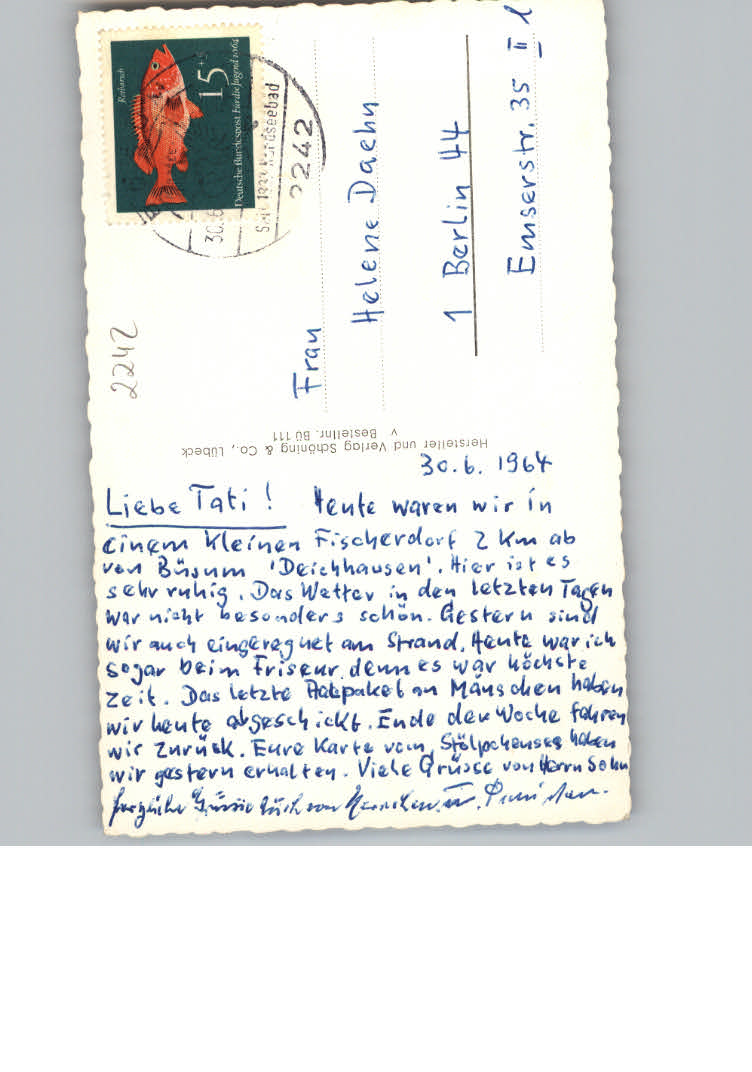 Rotbarsch
15+5
Deutsche Bundespost Für die Jugend 1964
30.6
Seit 1837 Nordseebad
2242
2242
Frau
Helene Daehn
1 Berlin 44
Emserstr. 35 II l
Hersteller und Verlag Schöning & Co., Lübeck
v Bestellnr. Bü 111
30.6. 1964
Liebe Tati! Heute waren wir in
einem kleinen Fischerdorf 2 km ab
von Büsum 'Deichhausen'. Hier ist es
sehr ruhig. Das Wetter in den letzten Tagen
war nicht besonders schön. Gestern sind
wir auch eingeregnet am Strand. Heute war ich
sogar beim Friseur, denn es war höchste
Zeit. Das letzte Aalpaket an Mäuschen haben
wir heute abgeschickt. Ende der Woche fahren
wir zurück. Eure Karte vom Stölpchensee haben
wir gestern erhalten. Viele Grüsse von Herrn Sohn
herzliche Grüsse Euch von u.